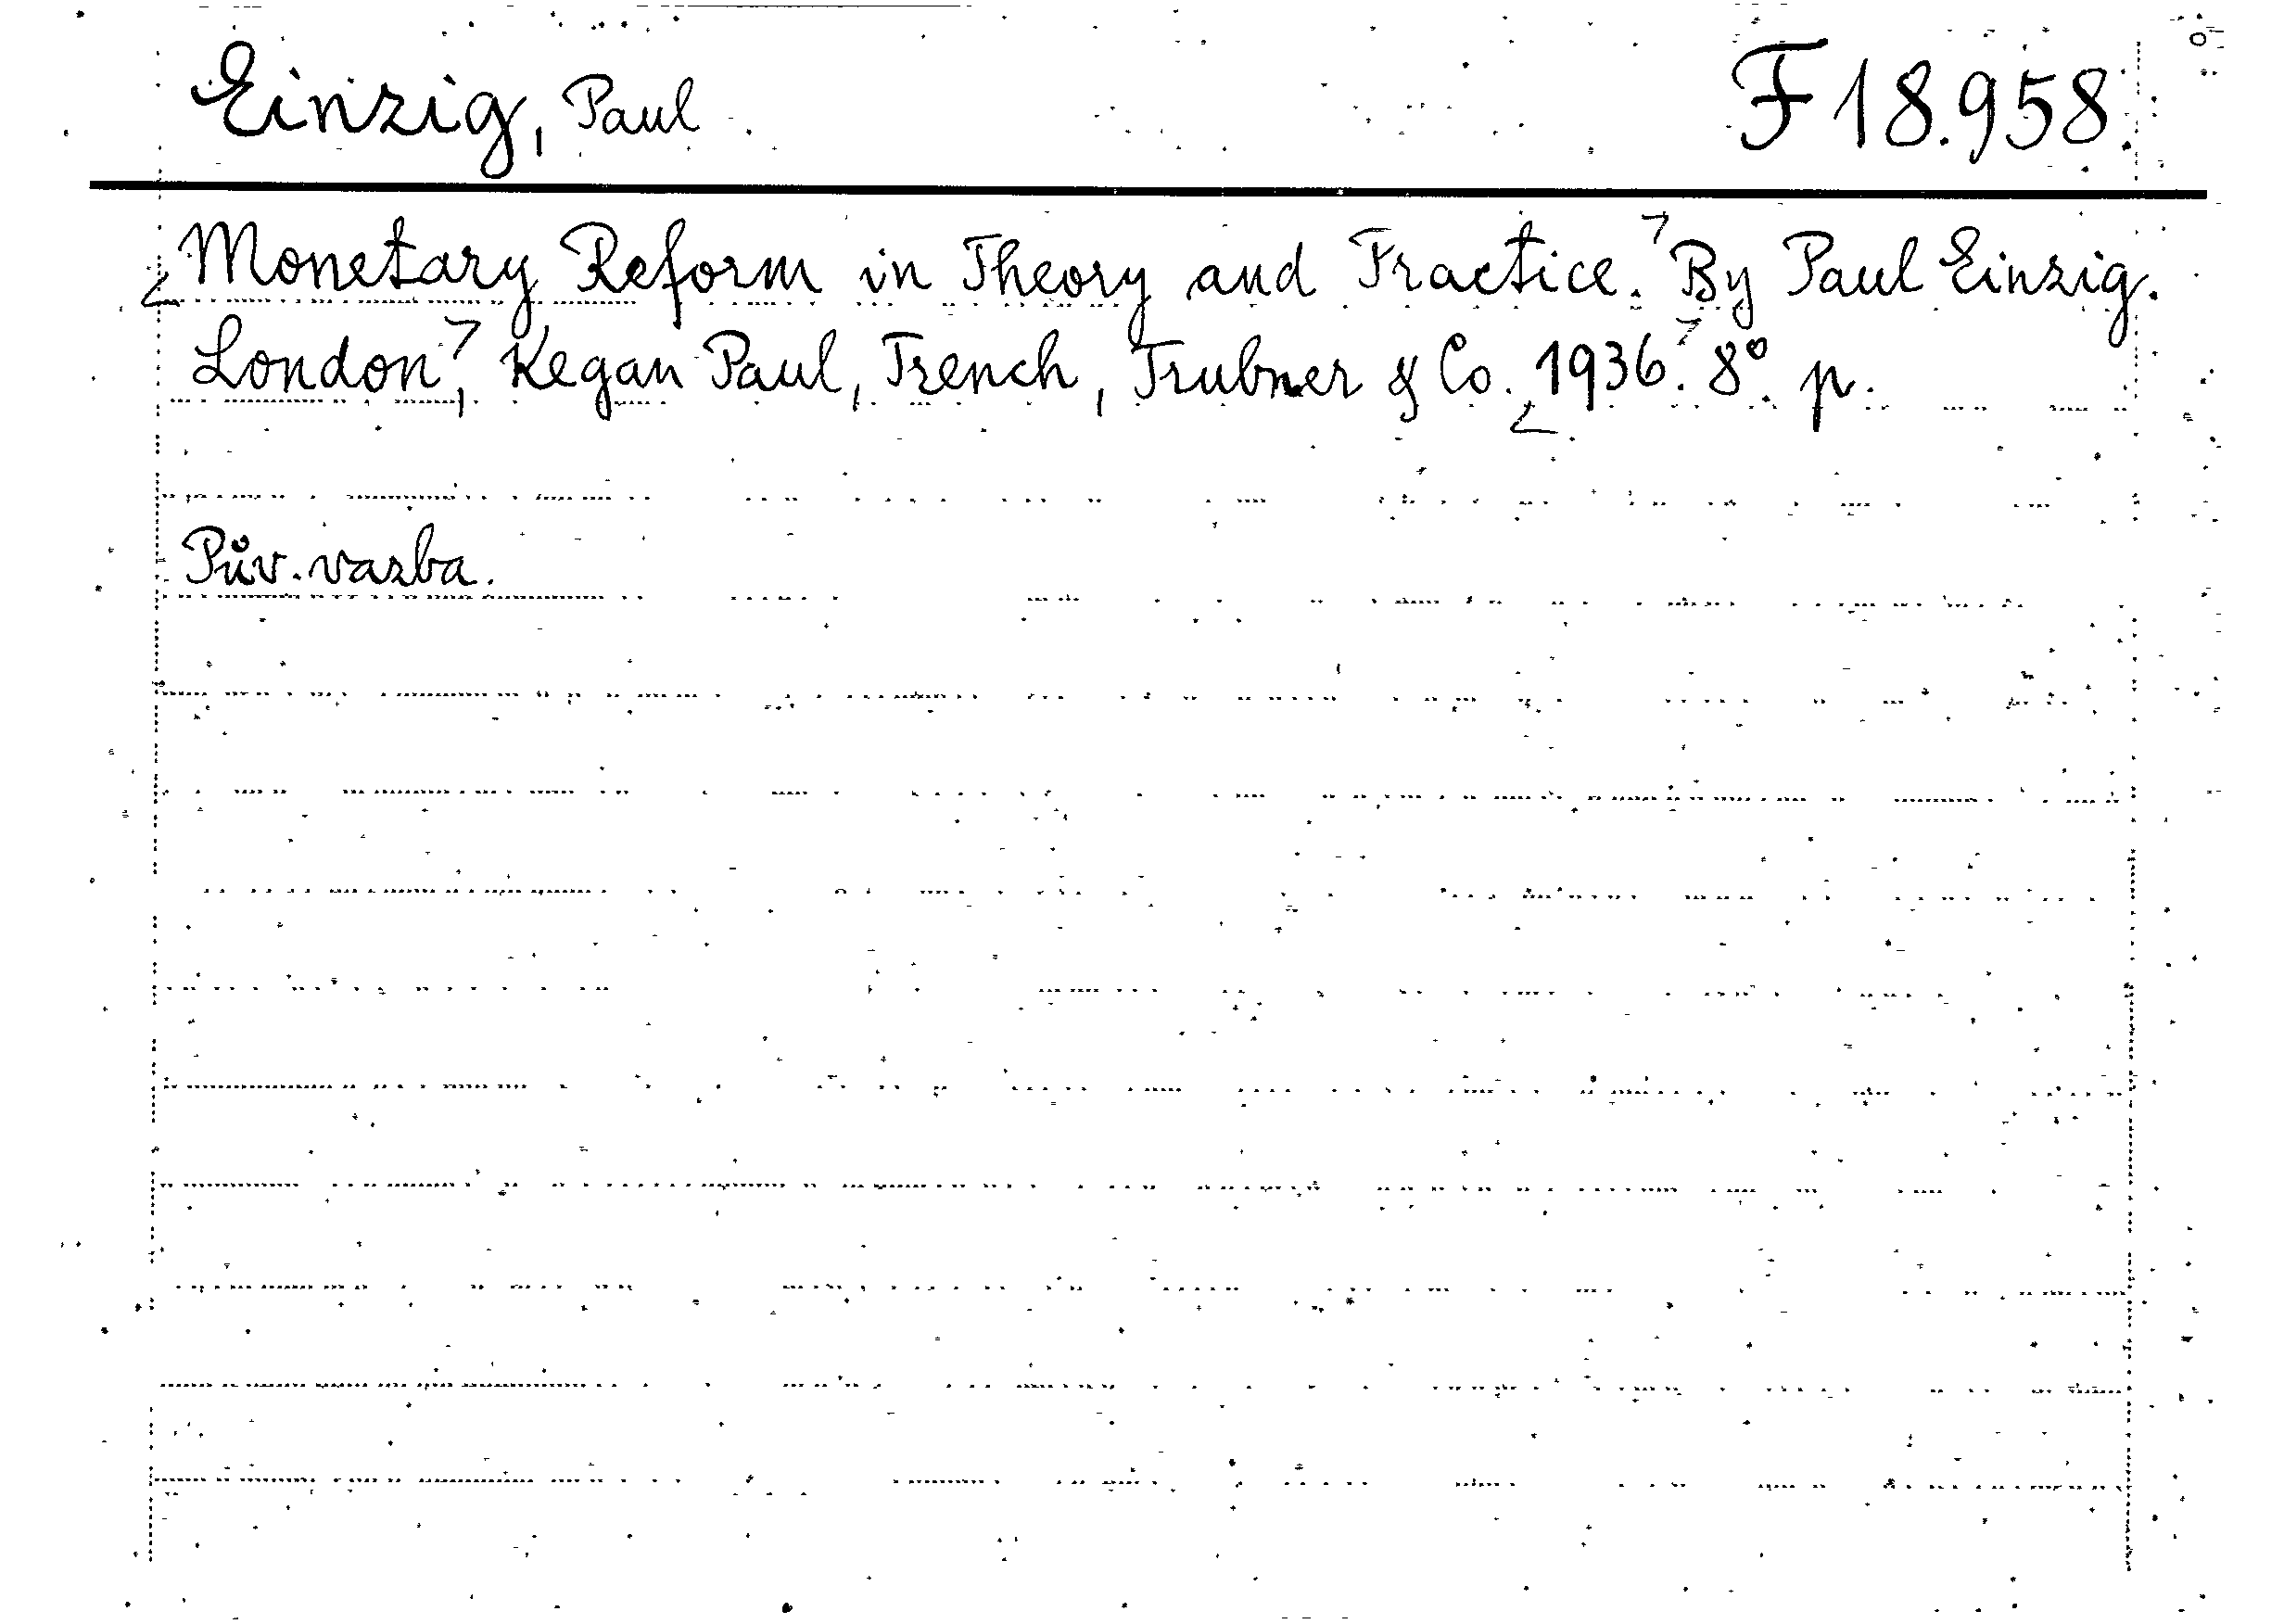 Einzig, Paul F 18.958.
Monetary Reform in Theory and Practice. By Paul Einzig.
London, Kegan Paul, Trench, Trubner & Co. 1936. 8° p.
Pův. vazba.